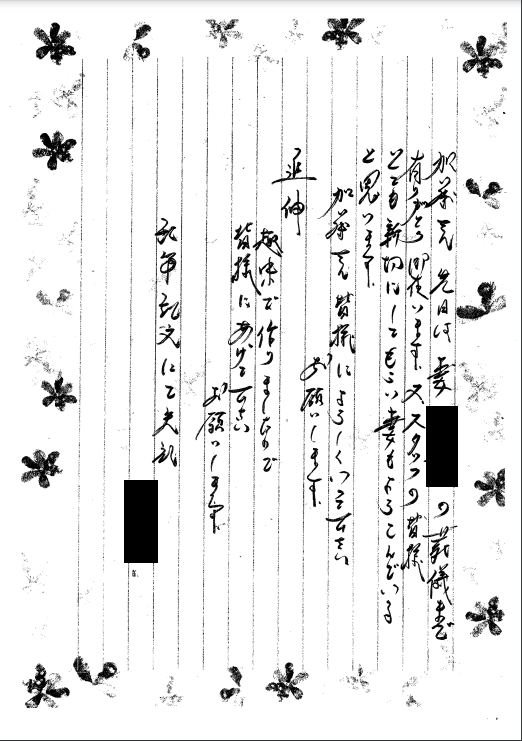 加藤さん 先日は 妻 の葬儀まで
有りがとう御座います 又スタッフの皆様
とても親切にしてもらい妻もよろこんでいる
と思います
加藤さん 皆様によろしくつ下さい
お願いします
追伸
趣味で作りましたので
皆様にあげて下さい
お願いします
乱筆乱文にて失礼